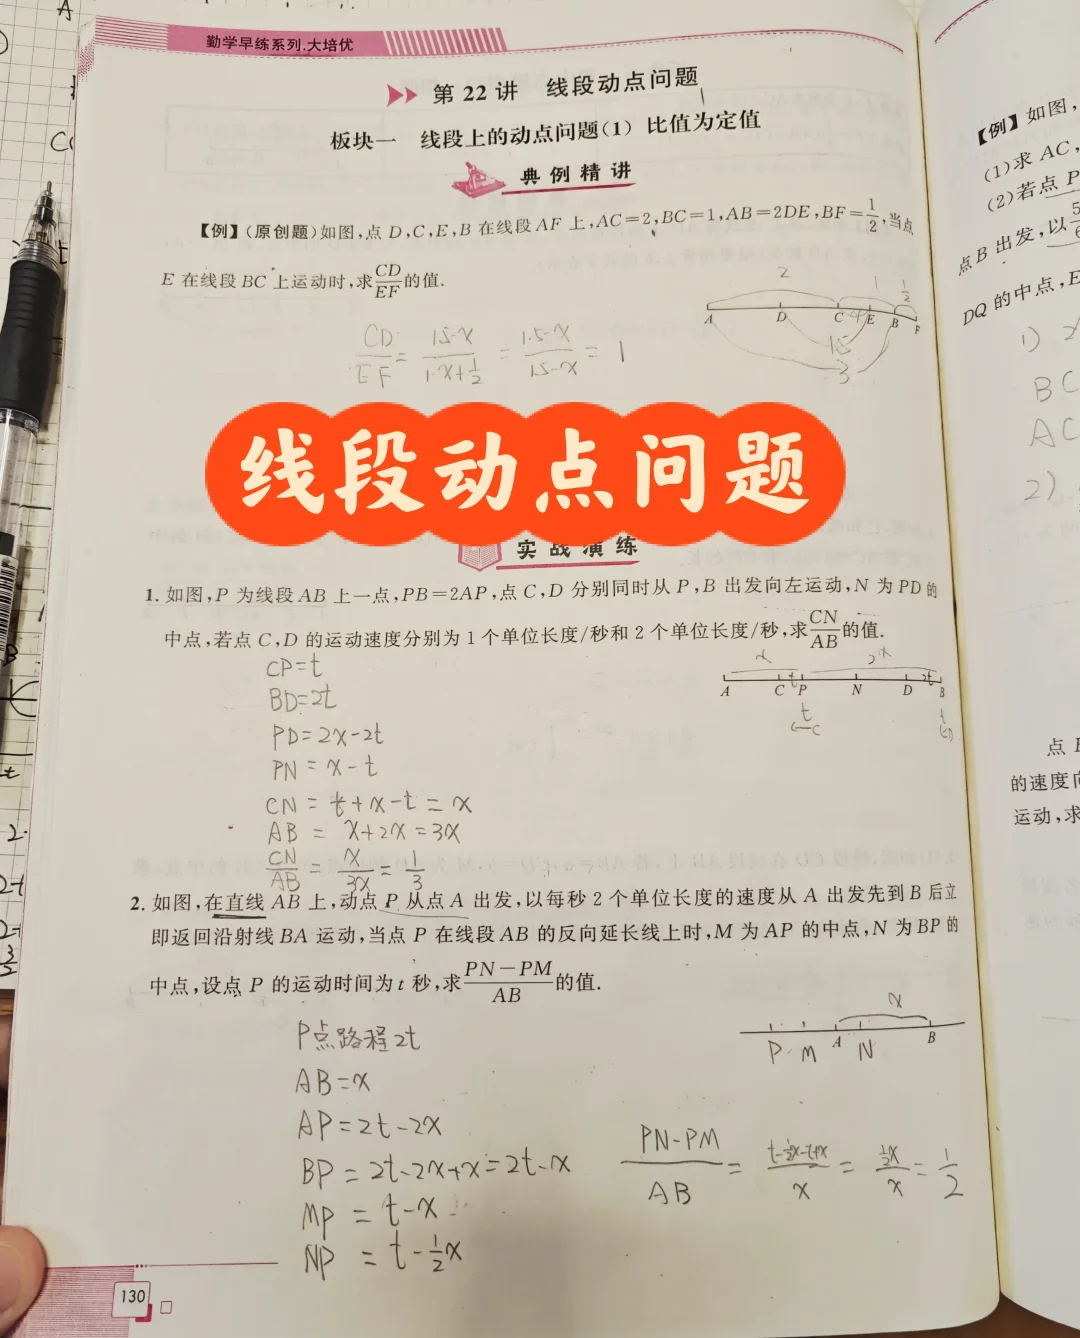 勤学早练系列.大培优
第 22 讲 线段动点问题
板块一 线段上的动点问题(1) 比值为定值
典例精讲
【例】(原创题)如图,点 D,C,E,B 在线段 AF 上,AC=2,BC=1,AB=2DE,BF=1/2,当点
E 在线段 BC 上运动时,求CD/EF的值.
2 1 1/2
A D C E B F
1.5
3
CD/EF = 1.5-x/1-x+1/2 = 1.5-x/1.5-x = 1
线段动点问题
实战演练
1. 如图,P 为线段 AB 上一点,PB=2AP,点 C,D 分别同时从 P,B 出发向左运动,N 为 PD 的
中点,若点 C,D 的运动速度分别为 1 个单位长度/秒和 2 个单位长度/秒,求CN/AB的值.
x 2x
t 2t
A C P N D B
t
←C
CP=t
BD=2t
PD=2x-2t
PN=x-t
CN=t+x-t=x
AB=x+2x=3x
CN/AB=x/3x=1/3
2. 如图,在直线 AB 上,动点 P 从点 A 出发,以每秒 2 个单位长度的速度从 A 出发先到 B 后立
即返回沿射线 BA 运动,当点 P 在线段 AB 的反向延长线上时,M 为 AP 的中点,N 为 BP 的
中点,设点 P 的运动时间为 t 秒,求PN-PM/AB的值.
x
P M A N B
P点路程2t
AB=x
AP=2t-2x
BP=2t-2x+x=2t-x
MP=t-x
NP=t-1/2x
PN-PM/AB = t-1/2x-t+x/x = 1/2x/x = 1/2
130
【例】如图,
(1)求 AC,
(2)若点 P
点B 出发,以
DQ 的中点,E
1)
BC
AC
2)
点
的速度向
运动,求